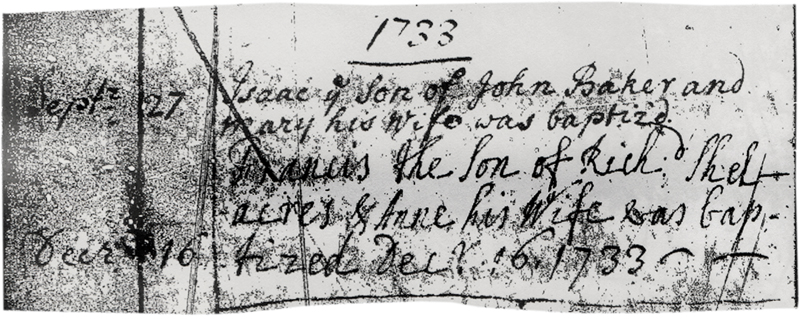 1733
Septr. 27 Isaac ye Son of John Baker and
mary his Wife was baptiz'd
Francis the Son of Richd. Shelt-
acres & Anne his Wife was bap,-
Decr. 16 tized Decr. 16. 1733